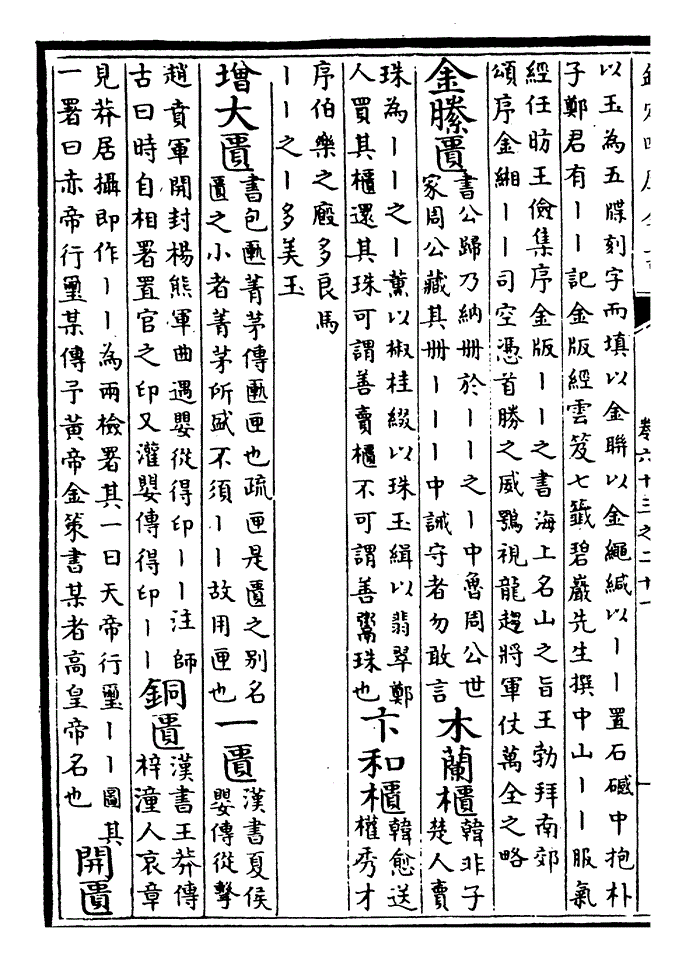 卷六十三之二十一
以玉為五牒刻字而填以金聯以金繩緘以丨丨置石䃭中抱朴
子鄭君有丨丨記金版經雲笈七籤碧巖先生撰中山丨丨服氣
經任昉王儉集序金版丨丨之書海上名山之旨王勃拜南郊
頌序金緗丨丨司空憑首勝之威鶚視龍趨將軍仗萬全之略
金縢匱
書公歸乃納册於丨丨之丨中魯周公世
家周公藏其册丨丨丨中誡守者勿敢言
木蘭櫃
韓非子
楚人賣
珠為丨丨之丨薰以椒桂綴以珠玉緝以翡翠鄭
人買其櫃還其珠可謂善賣櫃不可謂善鬻珠也
卞和櫃
韓愈送
權秀才
序伯樂之廄多良馬
丨丨之丨多美玉
增大匱
書包匭菁茅傳匭匣也疏匣是匱之别名
匱之小者菁茅所盛不須丨丨故用匣也
一匱
漢書夏侯
嬰傳從擊
趙賁軍開封楊熊軍曲遇嬰從得印丨丨注師
古曰時自相署置官之印又灌嬰傳得印丨丨
銅匱
漢書王莽傳
梓潼人哀章
見莽居攝即作丨丨為兩檢署其一曰天帝行璽丨丨圖其
一署曰赤帝行璽某傳予黄帝金策書某者高皇帝名也
開匱